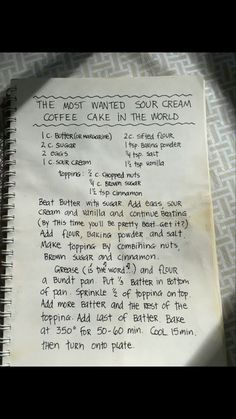 THE MOST WANTED SOUR CREAM
COFFEE CAKE IN THE WORLD
1 c. BUTTER (OR MARGARINE) 2 c. sifted flour
2 c. sugar 1 tsp. baking powder
2 eggs 1/4 tsp. salt
1 c. sour cream 1/2 tsp. vanilla
topping: 1/2 c chopped nuts
1/4 c. brown sugar
1 1/2 tsp cinnamon
Beat Butter with sugar. Add eggs, sour
cream and vanilla and continue Beating
(By this time you'll be pretty Beat. get it?)
Add flour, Baking powder and salt.
Make topping By combining nuts,
Brown sugar and cinnamon.
Grease (is the word!) and flour
a Bundt pan. Put 1/3 Batter in Bottom
of pan. Sprinkle 1/2 of topping on top.
Add more Batter and the rest of the
topping. Add last of Batter. Bake
at 350° for 50-60 min. Cool 15 min.
then turn onto plate.